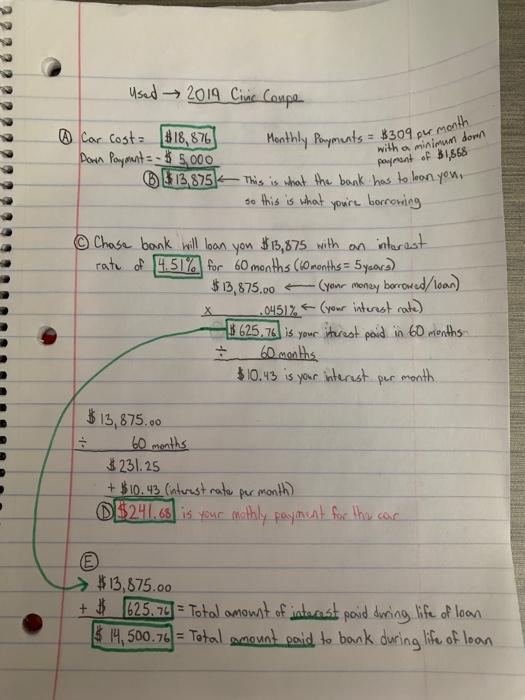 Used → 2019 Civic Coupe
Ⓐ Car Cost = $18,876
Down Payment = - $ 5,000
Ⓑ $13,875 ← This is what the bank has to loan you,
so this is what you're borrowing
Monthly Payments = $309 per month
with a minimum down
payment of $1,868
Ⓒ Chase bank will loan you $13,875 with an interest
rate of 4.51% for 60 months (60 months = 5 years)
$13,875.00 ← (your money borrowed/loan)
x .0451% ← (your interest rate)
$625.76 is your interest paid in 60 months
÷ 60 months
$10.43 is your interest per month
$13,875.00
÷ 60 months
$231.25
+ $10.43 (interest rate per month)
Ⓓ $241.68 is your mothly payment for the car
Ⓔ
$13,875.00
+ $ 625.76 = Total amount of interest paid during life of loan
$14,500.76 = Total amount paid to bank during life of loan